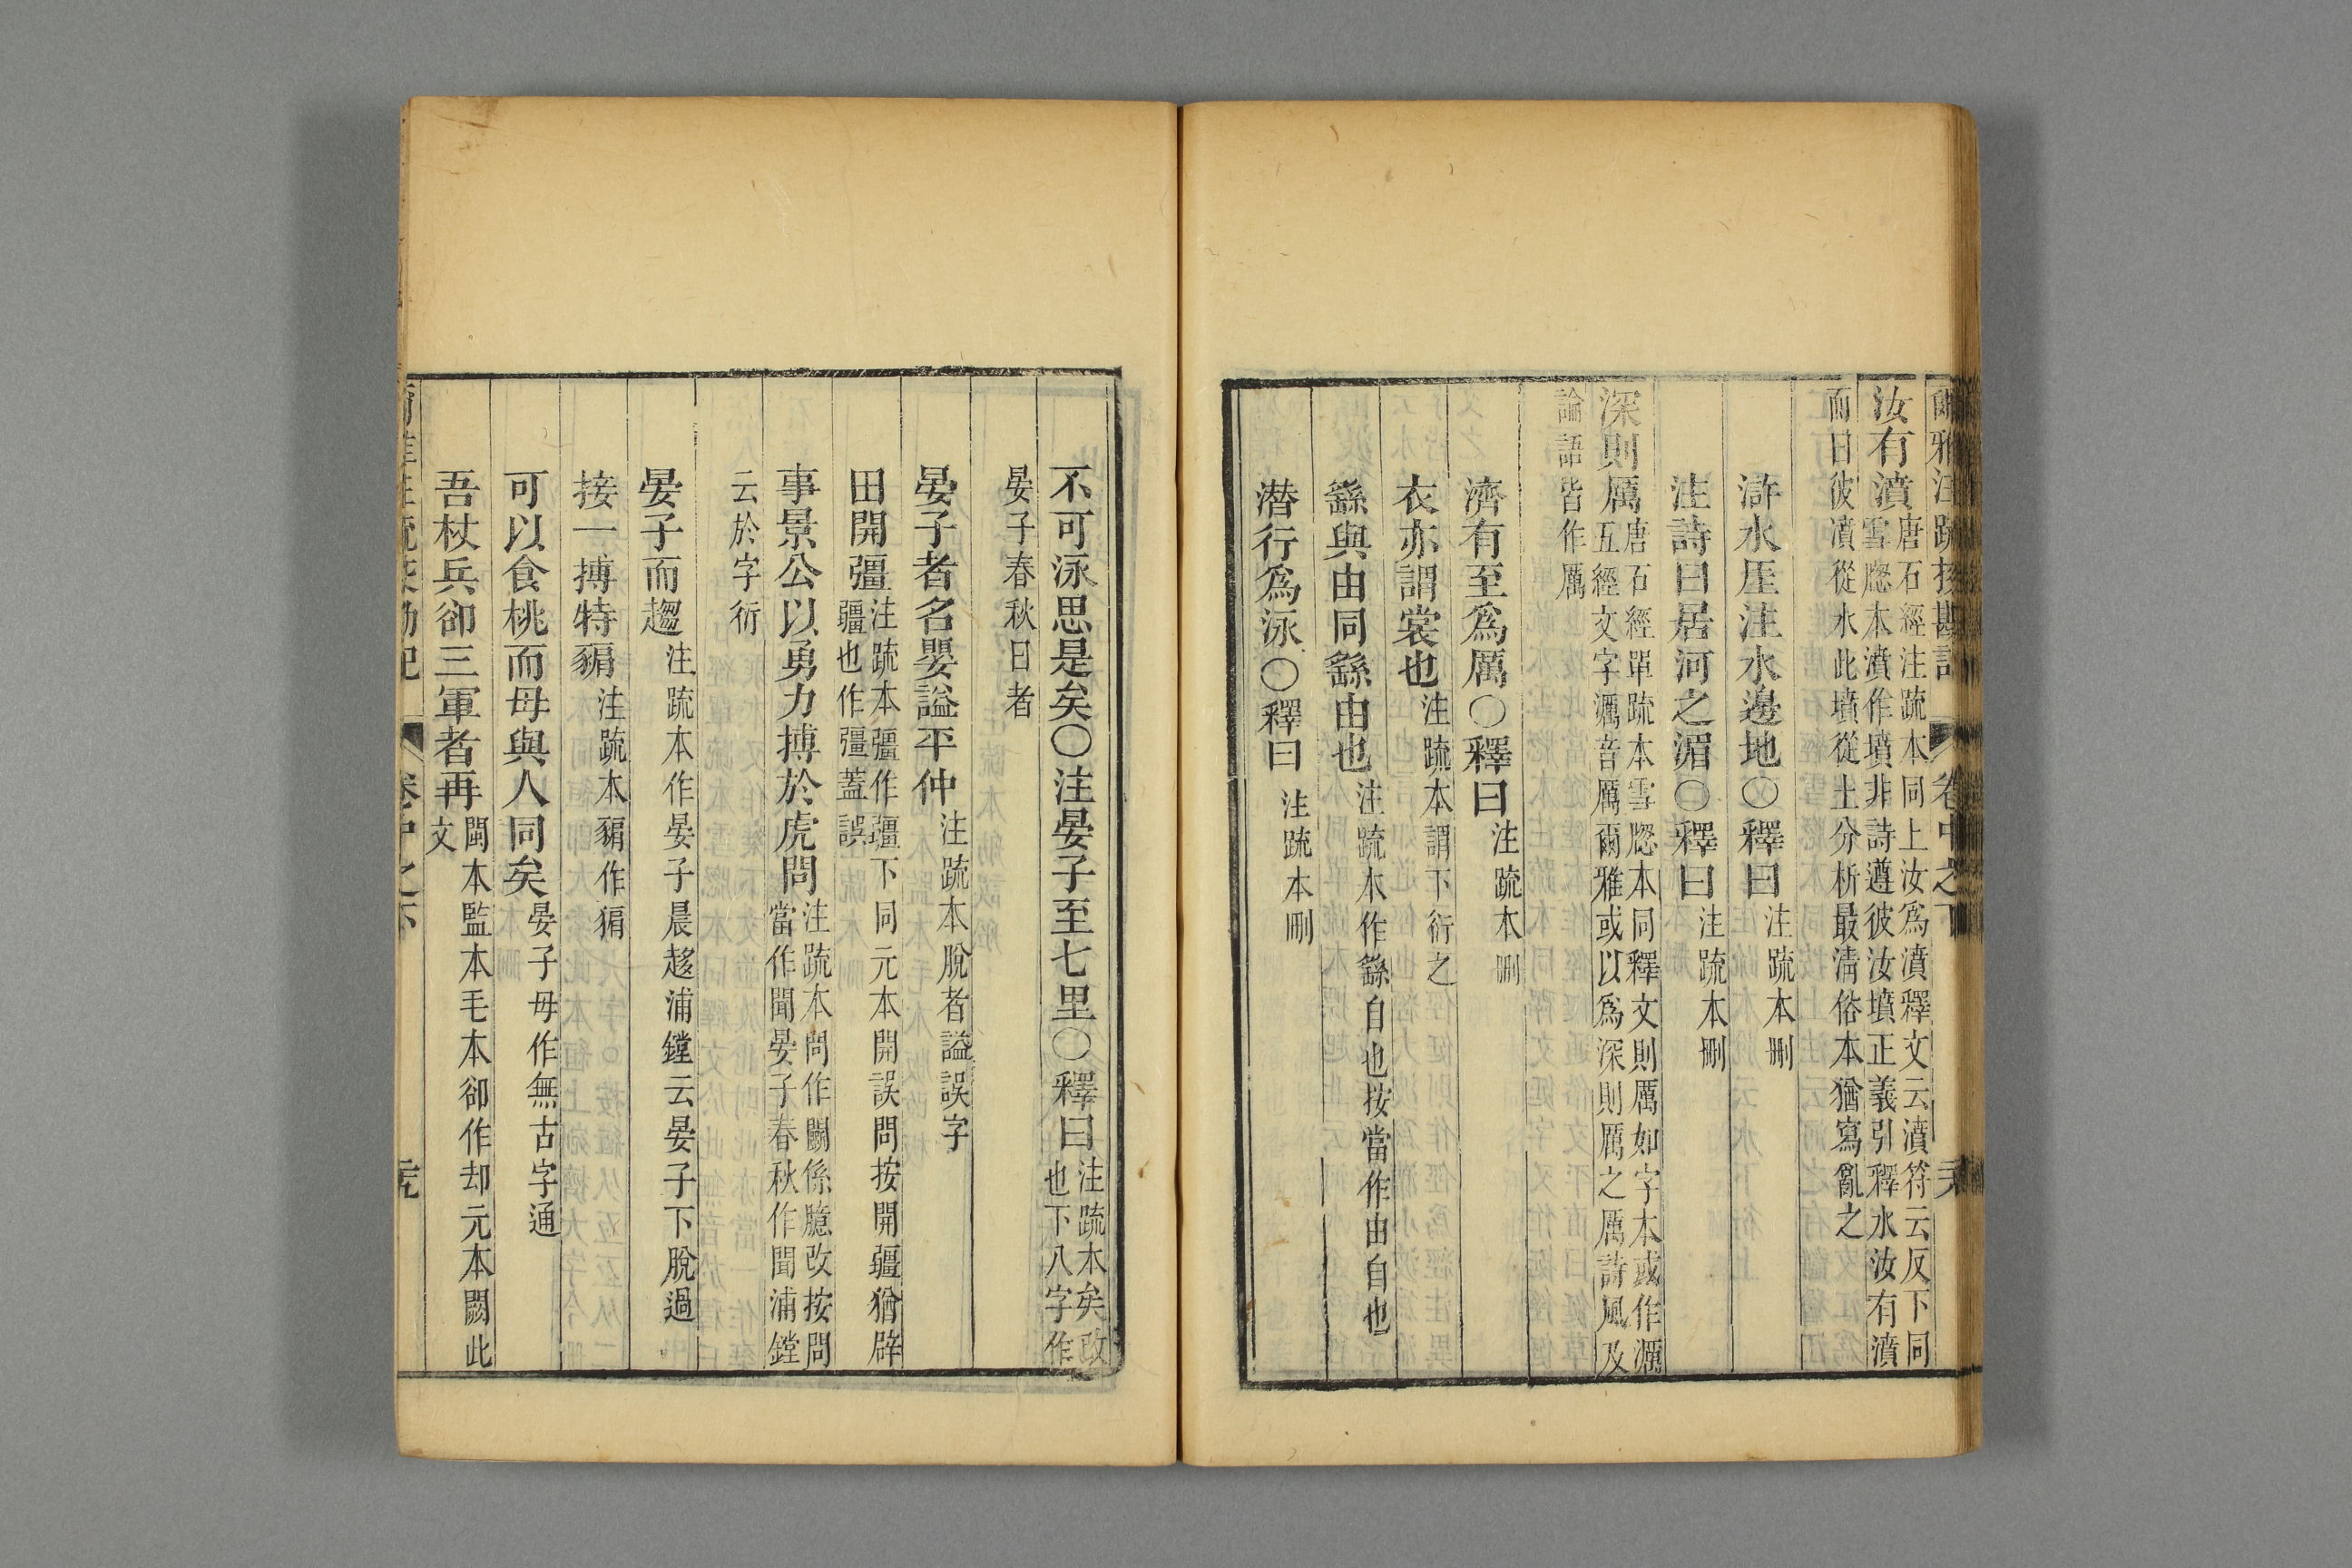 爾雅注疏挍勘記 卷中之下 天
汝有濆唐石經注疏本同上汝爲濆釋文云濆符云反下同
雪牕本濆作墳非詩遵彼汝墳正義引釋水汝有濆
而曰彼濆從水此墳從土分析最淸俗本猶寫亂之
滸水厓注水邊地○釋曰注疏本刪
注詩曰居河之湄○釋曰注疏本刪
深則厲唐石經單疏本雪牕本同釋文則厲如字本或作濿
五經文字濿音厲爾雅或以爲深則厲之厲詩風及
論語皆作厲
濟有至爲厲○釋曰注疏本刪
衣亦謂裳也注疏本謂下衍之
繇與由同繇由也注疏本作繇自也按當作由自也
潛行爲泳○釋曰注疏本刪
不可泳思是矣○注晏子至七里○釋曰注疏本矣改
也下八字作
晏子春秋曰者
晏子者名嬰謚平仲注疏本脫者謚誤字
田開彊注疏本彊作疆下同元本開誤問按開疆猶辟
疆也作彊蓋誤
事景公以勇力搏於虎問注疏本問作闞係臆改按問
當作聞晏子春秋作聞浦鏜
云於字衍
晏子而趨注疏本作晏子晨趍浦鏜云晏子下脫過
接一搏特豜注疏本豜作猏
可以食桃而毋與人同矣晏子毋作無古字通
吾杖兵卻三軍者再閩本監本毛本卻作却元本闕此
文
爾雅注疏挍勘記 卷中之下